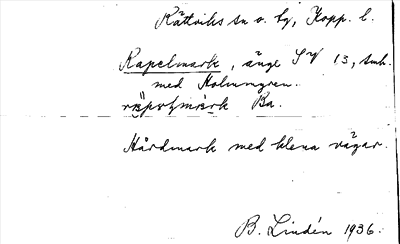 Rättviks sn o. by, Kopp. l.
Kapelmark, änge SV 13, smh.
med Holmungren.
Ba.
Hårdmark med klena vägar.
B. Lindén 1936.